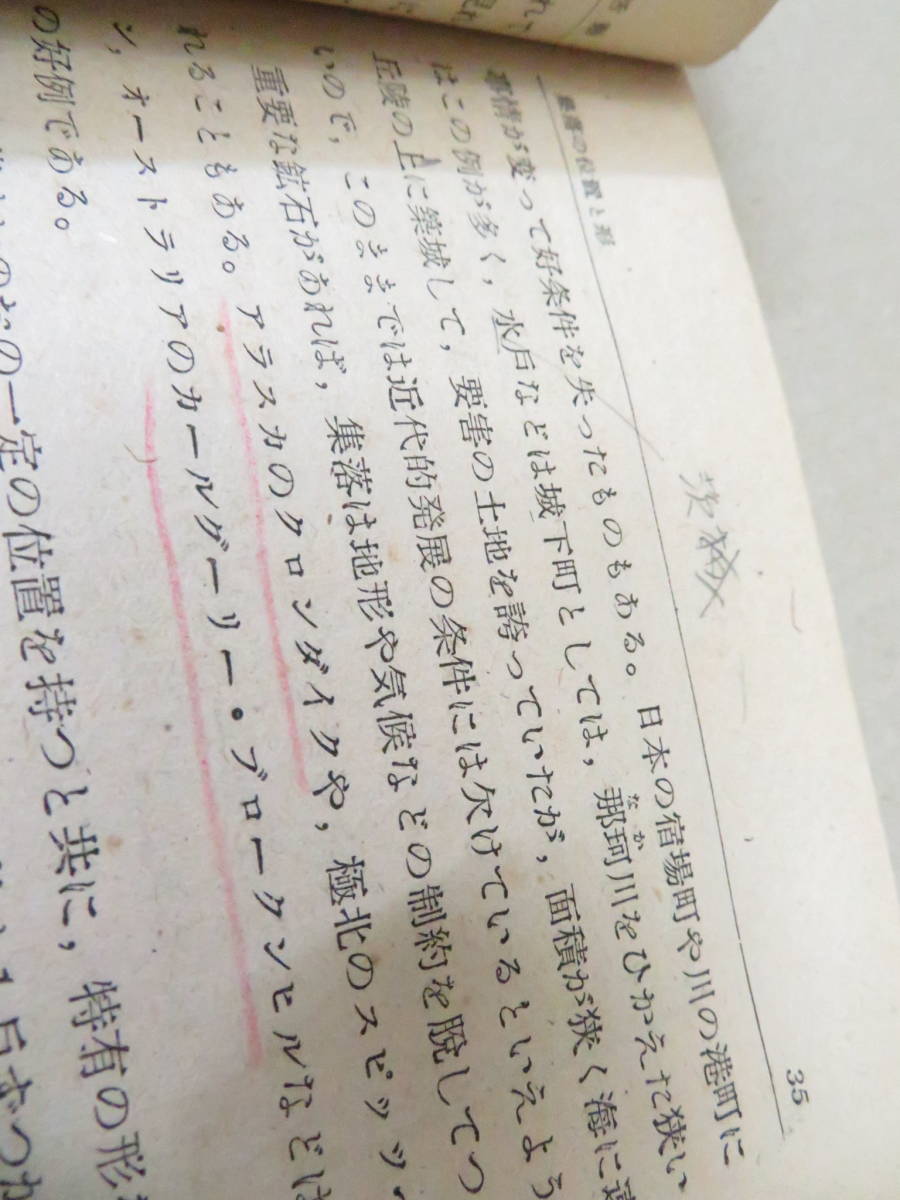 集落の位置と形 35
茨城
事情が変って好条件を失ったものもある。日本の宿場町や川の港町に
はこの例が多く，水戸などは城下町としては，那珂川をひかえた狭い
なか
丘陵の上に築城して，要害の土地を誇っていたが，面積が狭く海に遠
いので，このままでは近代的発展の条件には欠けているといえよう
重要な鉱石があれば，集落は地形や気候などの制約を脱してつ
れることもある。アラスカのクロンダイクや，極北のスピッツ
ン，オーストラリアのカールグーリー・ブロークンヒルなどは
の好例である。
一定の位置を持つと共に，特有の形